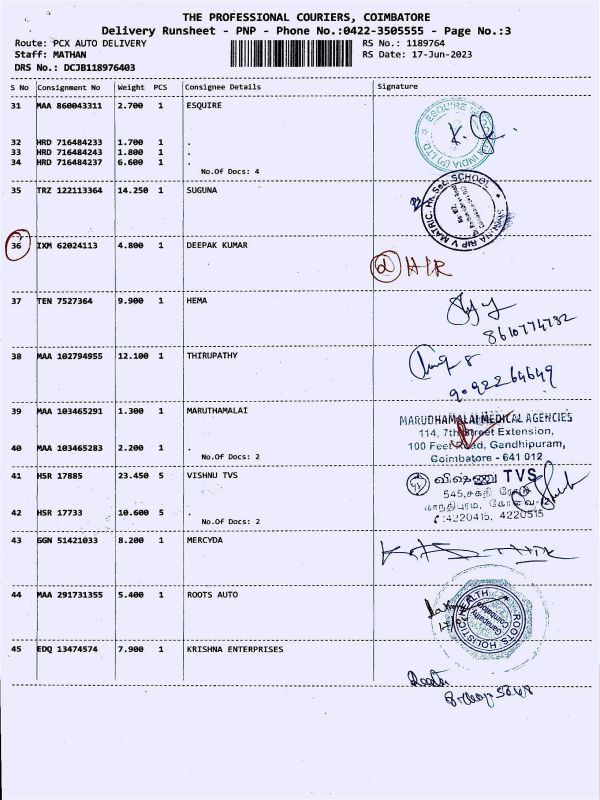 THE PROFESSIONAL COURIERS, COIMBATORE
Delivery Runsheet - PNP - Phone No.:0422-3505555 - Page No.:3
Route: PCX AUTO DELIVERY RS No.: 1189764
Staff: MATHAN RS Date: 17-Jun-2023
DRS No.: DCJB118976403
S No Consignment No Weight PCS Consignee Details Signature
31 MAA 860043311 2.700 1 ESQUIRE
32 HRD 716484233 1.700 1 .
33 HRD 716484243 1.800 1 .
34 HRD 716484237 6.600 1 .
No.Of Docs: 4
35 TRZ 122113364 14.250 1 SUGUNA
36 IXM 62024113 4.800 1 DEEPAK KUMAR
37 TEN 7527364 9.900 1 HEMA
8610774782
38 MAA 102794955 12.100 1 THIRUPATHY
9092264649
39 MAA 103465291 1.300 1 MARUTHAMALAI
MARUDHAMALAI MEDICAL AGENCIES
114, 7th Street Extension,
100 Feet Road, Gandhipuram,
Coimbatore - 641 012
40 MAA 103465283 2.200 1 .
No.Of Docs: 2
41 HSR 17885 23.450 5 VISHNU TVS
விஷ்ணு TVS
42 HSR 17733 10.600 5 .
No.Of Docs: 2
✆:4220415, 4220515
43 GGN 51421033 8.200 1 MERCYDA
44 MAA 291731355 5.400 1 ROOTS AUTO
ROOTS HOLISTIC HEALTH
45 EDQ 13474574 7.900 1 KRISHNA ENTERPRISES